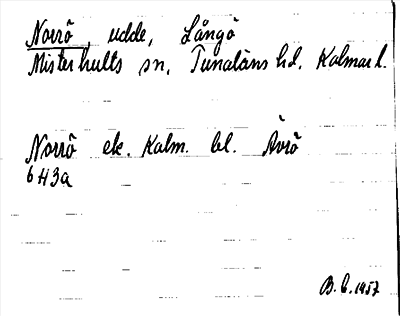 Norrö, udde, Långö
Misterhults sn, Tunaläns hd. Kalmar l.
Norrö ek. Kalm. bl. Ävrö
6H3a
B.C. 1957